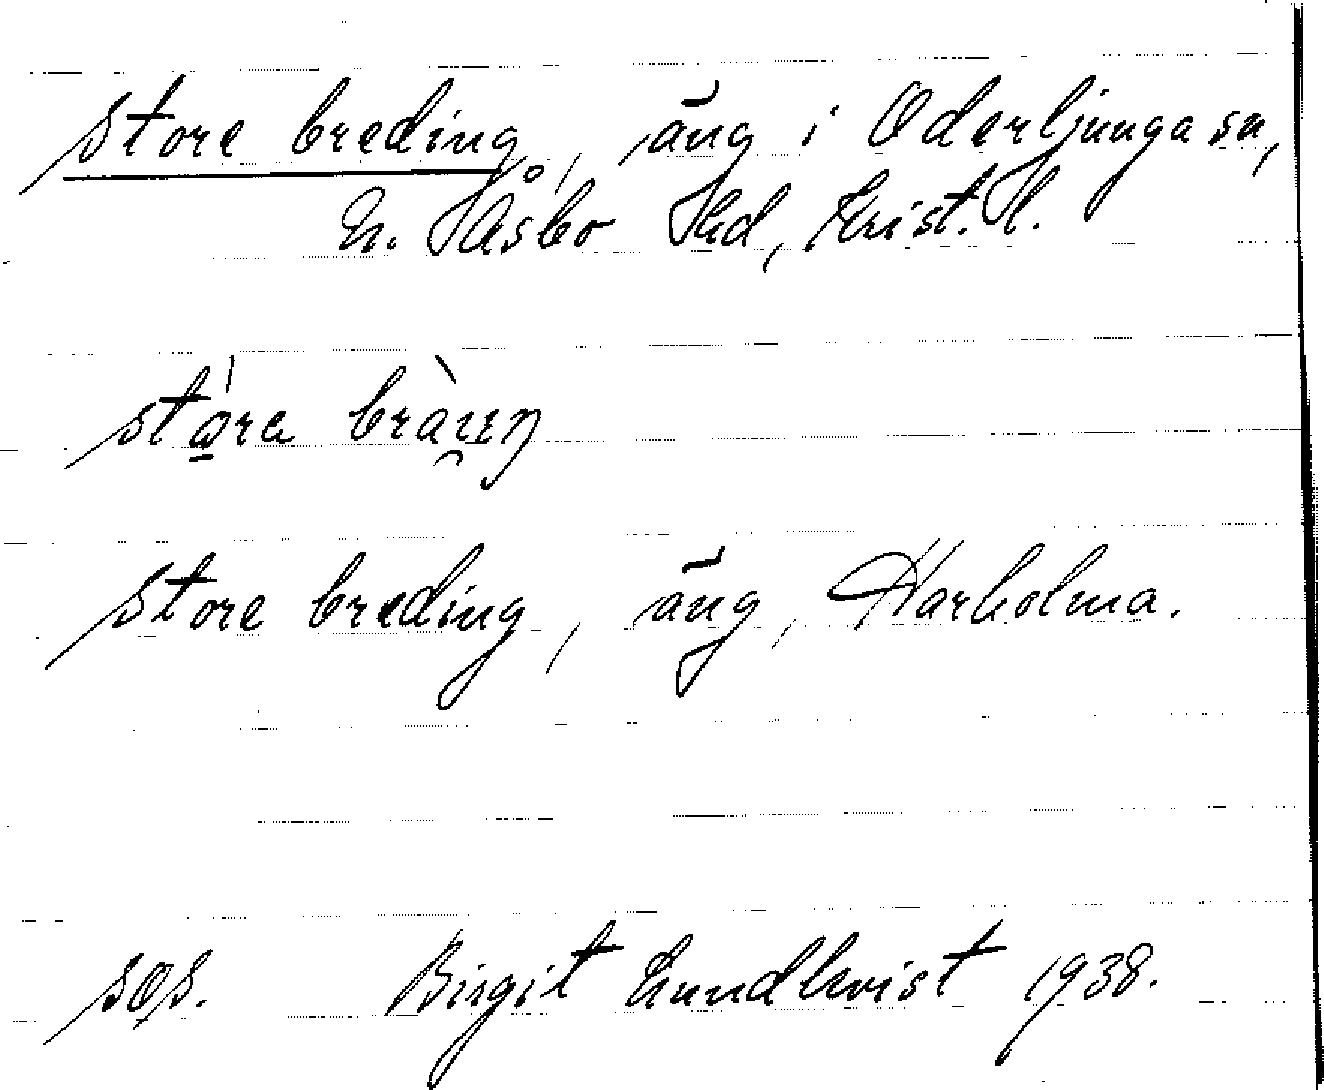 store breding, äng i Oderljunga sn,
N. Åsbo Hd, Krist. l.
store breding, äng, Harholma.
sgs. Birgit Lundkvist 1938.